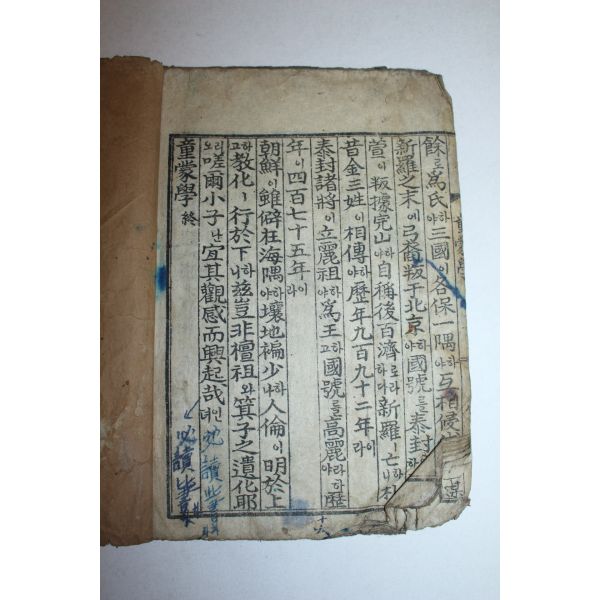 童蒙學
餘로爲氏하야三國이各保一隅하야互相侵
新羅之末에弓裔叛于北京하야國號를泰封
萱이叛據完山하야自稱後百濟로라하다新羅ㅣ亡하니朴
昔金三姓이相傳하야歷年九百九十二年이라
泰封諸將이立麗祖하야爲王하고國號를高麗라하야歷
年이四百七十五年이라
朝鮮이雖僻在海隅하야壤地褊少하나人倫이明於上
하고敎化ㅣ行於下하니玆豈非檀祖와箕子之遺化耶
리오嗟爾小子난宜其觀感而興起哉인뎌
童蒙學 終
必讀此書
必讀此書